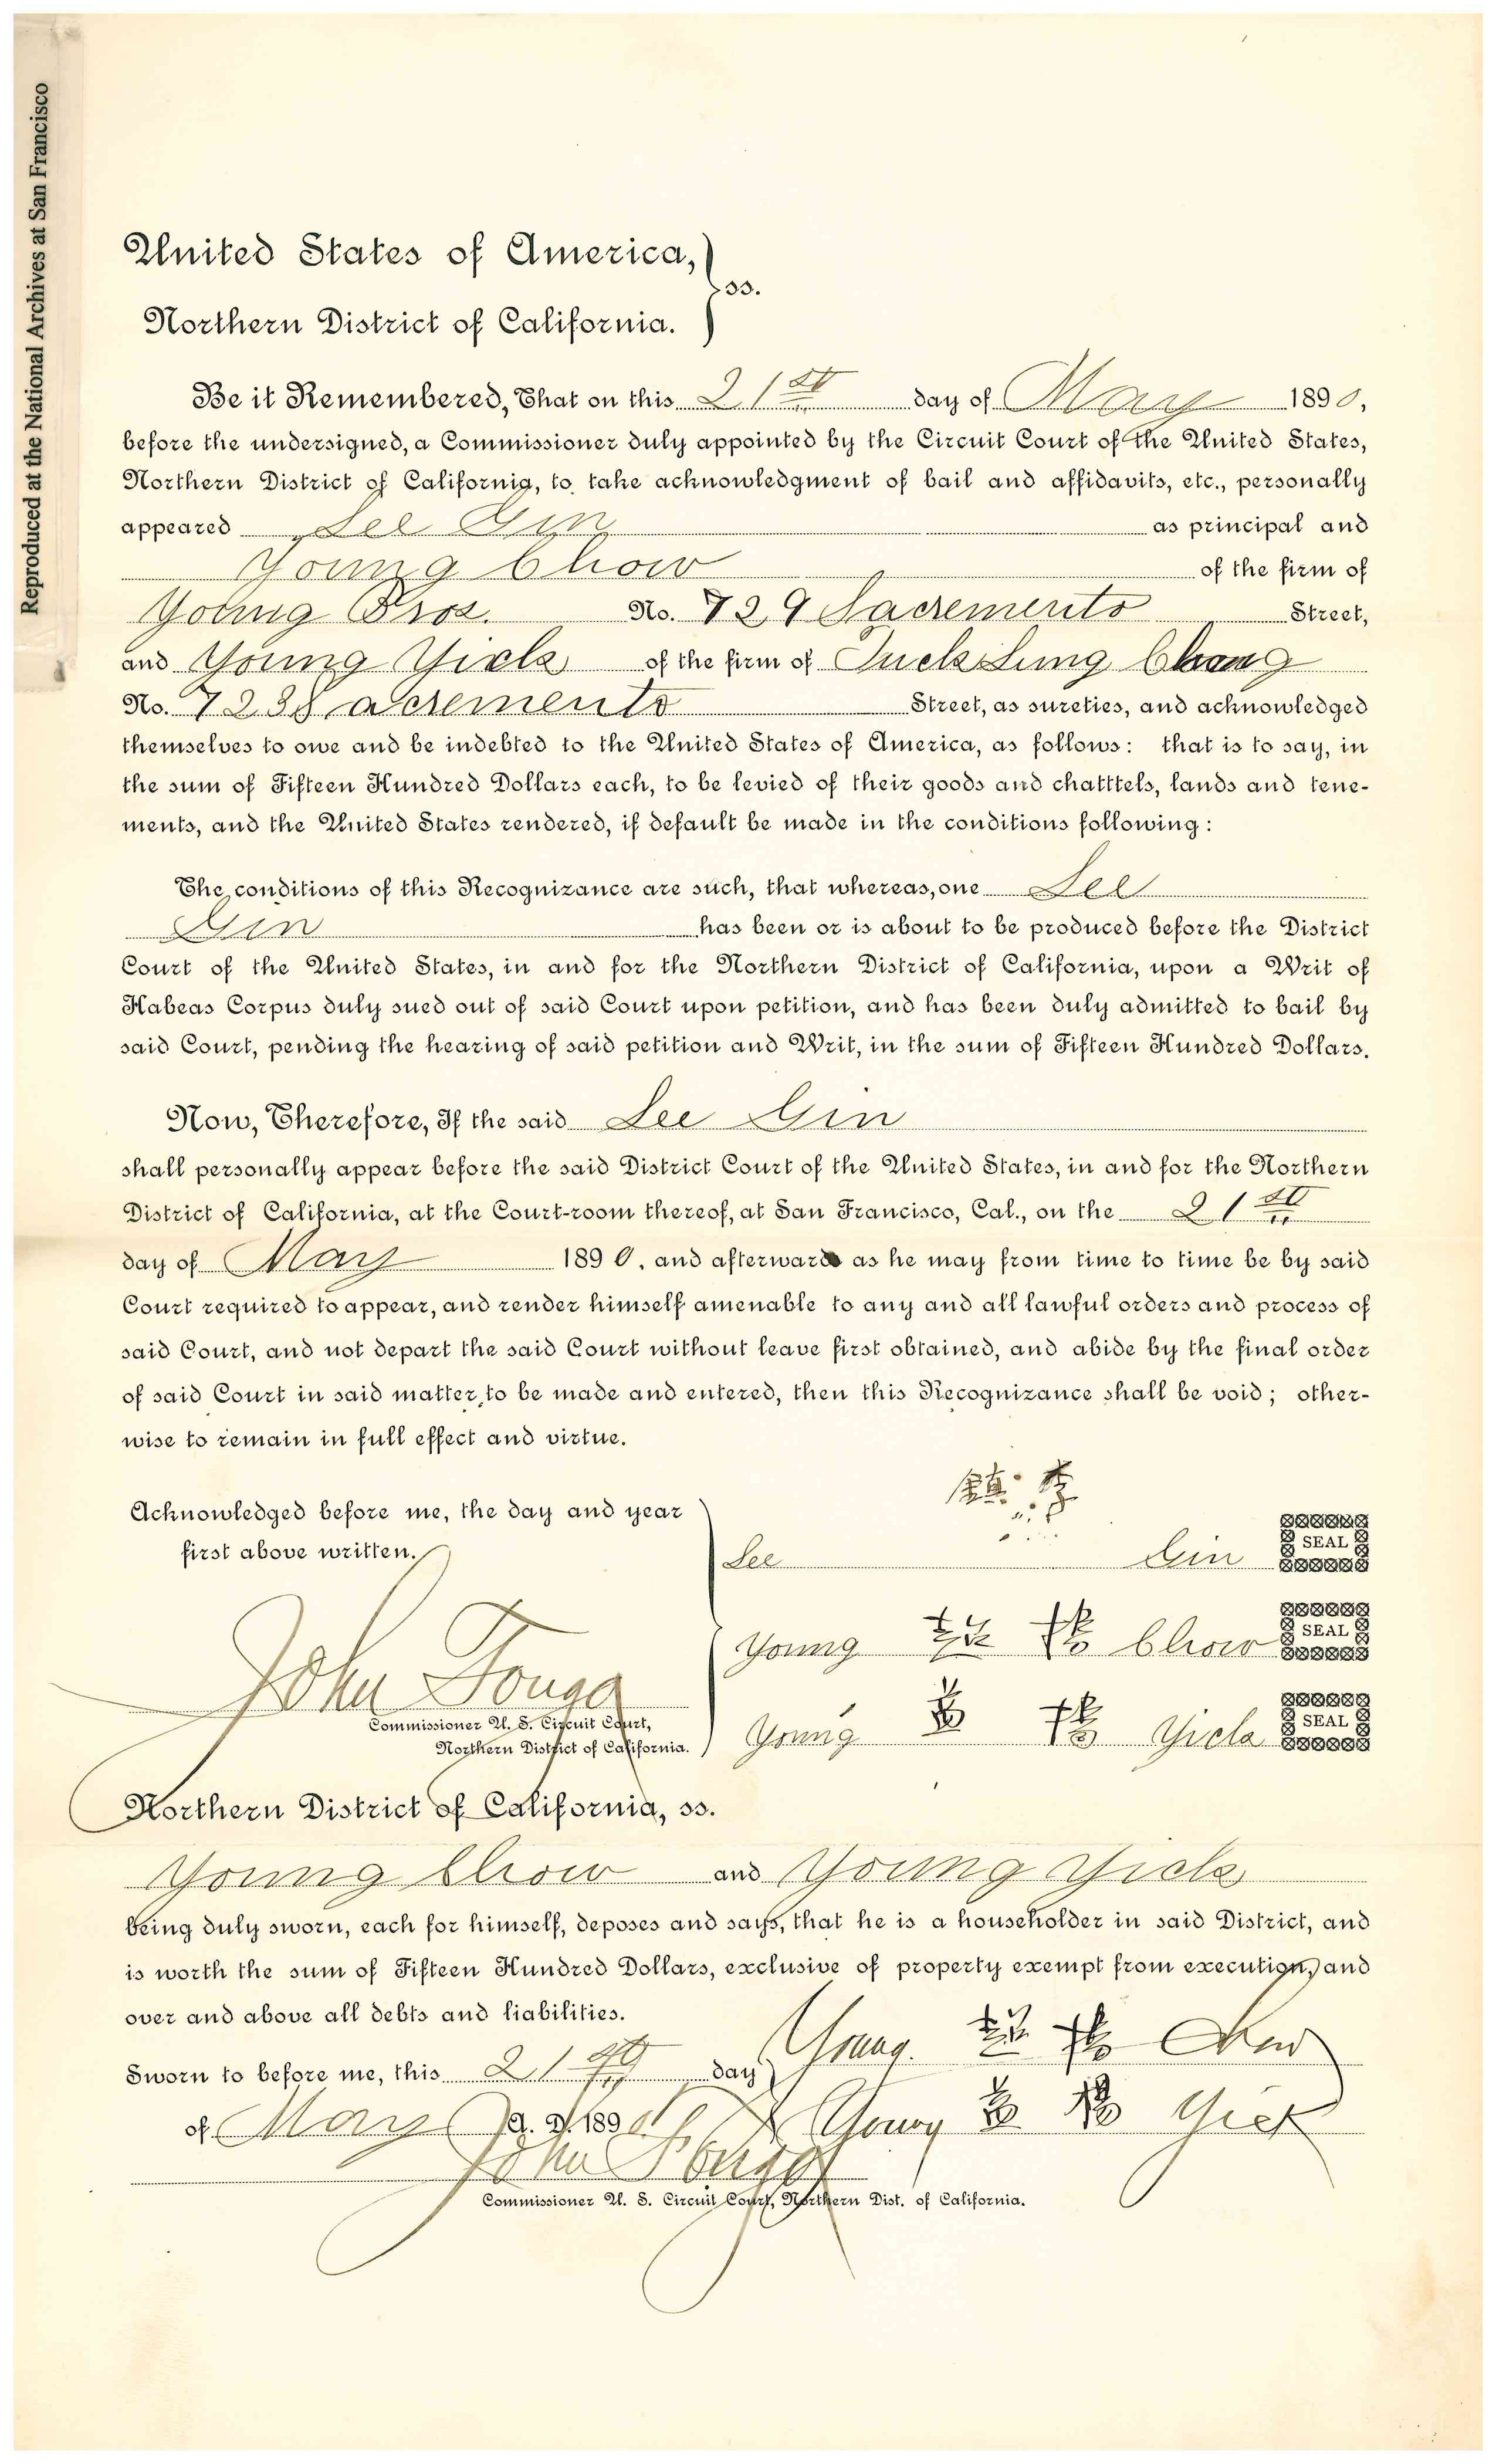 Reproduced at the National Archives at San Francisco
United States of America,
ss.
Northern District of California.
Be it Remembered, That on this 21st day of May 1890,
before the undersigned, a Commissioner duly appointed by the Circuit Court of the United States,
Northern District of California, to take acknowledgment of bail and affidavits, etc., personally
appeared Lee Gin as principal and
Young Chow of the firm of
Young Bros. No. 729 Sacremento Street,
and Young Yick of the firm of Tuck Lung Chong
No. 728 Sacremento Street, as sureties, and acknowledged
themselves to owe and be indebted to the United States of America, as follows: that is to say, in
the sum of Fifteen Hundred Dollars each, to be levied of their goods and chatttels, lands and tene-
ments, and the United States rendered, if default be made in the conditions following:
The conditions of this Recognizance are such, that whereas, one Lee
Gin has been or is about to be produced before the District
Court of the United States, in and for the Northern District of California, upon a Writ of
Habeas Corpus duly sued out of said Court upon petition, and has been duly admitted to bail by
said Court, pending the hearing of said petition and Writ, in the sum of Fifteen Hundred Dollars.
Now, Therefore, If the said Lee Gin
shall personally appear before the said District Court of the United States, in and for the Northern
District of California, at the Court-room thereof, at San Francisco, Cal., on the 21st
day of May 1890, and afterwards as he may from time to time be by said
Court required to appear, and render himself amenable to any and all lawful orders and process of
said Court, and not depart the said Court without leave first obtained, and abide by the final order
of said Court in said matter, to be made and entered, then this Recognizance shall be void; other-
wise to remain in full effect and virtue.
鎮 李
Acknowledged before me, the day and year
first above written.
Lee Gin SEAL
Young Chow SEAL
John Fouga
Commissioner U. S. Circuit Court,
Northern District of California.
Young Yick SEAL
Northern District of California, ss.
Young Chow and Young Yick
being duly sworn, each for himself, deposes and says, that he is a householder in said District, and
is worth the sum of Fifteen Hundred Dollars, exclusive of property exempt from execution, and
over and above all debts and liabilities.
Young Chow
Sworn to before me, this 21st day
of May A. D. 1890
Young Yick
John Fouga
Commissioner U. S. Circuit Court, Northern Dist. of California.